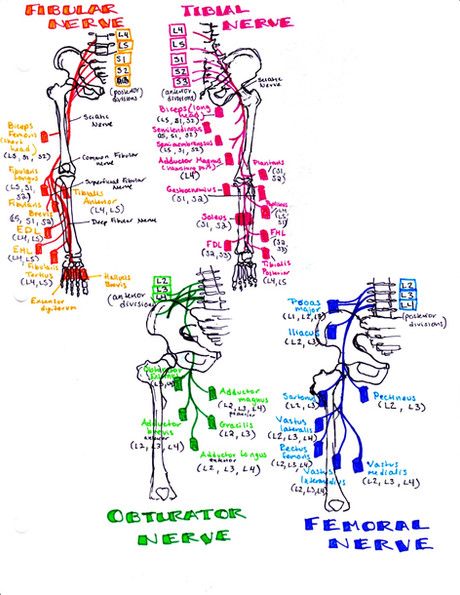 FIBULAR
NERVE
L4
L5
S1
S2
(posterior
divisions)
Sciatic
Nerve
Biceps
Femoris
(short
head)
(L5, S1, S2)
Common Fibular
Nerve
Fibularis
Longus
(L5, S1,
S2)
Superficial Fibular
Nerve
Tibialis
Anterior
(L4, L5)
Fibularis
Brevis
(L5, S1, S2)
Deep Fibular Nerve
EDL
(L4, L5)
EHL
(L4, L5)
Fibularis
Tertius
(L4, L5)
Hallucis
Brevis
Extensor
digitorum
TIBIAL
NERVE
L4
L5
S1
S2
S3
(anterior
divisions)
Sciatic
Nerve
Biceps (long
head)
(L5, S1, S2)
Semitendinosus
(L5, S1, S2)
Semimembranosus
(L5, S1, S2)
Adductor Magnus
(L4)
Plantaris
(S1,
S2)
Gastrocnemius
(S1, S2)
Popliteus
(L4,
L5,
S1)
Soleus
(S1, S2)
FHL
(S2,
S3)
FDL
(S2, S3)
Tibialis
Posterior
(L4, L5)
L2
L3
L4
(anterior
divisions)
Obturator
Externus
(L3, L4)
Adductor
magnus
(L2, L3, L4)
posterior
Gracilis
(L2, L3)
Adductor
brevis
anterior
(L2, L3, L4)
Adductor Longus
anterior
(L2, L3, L4)
OBTURATOR
NERVE
L2
L3
L4
(posterior
divisions)
Psoas
major
(L1, L2, L3)
Iliacus
(L2, L3)
Sartorius
(L2, L3)
Pectineus
(L2, L3)
Vastus
lateralis
(L2, L3, L4)
Rectus
femoris
(L2, L3, L4)
Vastus
Intermedius
(L2, L3, L4)
Vastus
medialis
(L2, L3, L4)
FEMORAL
NERVE